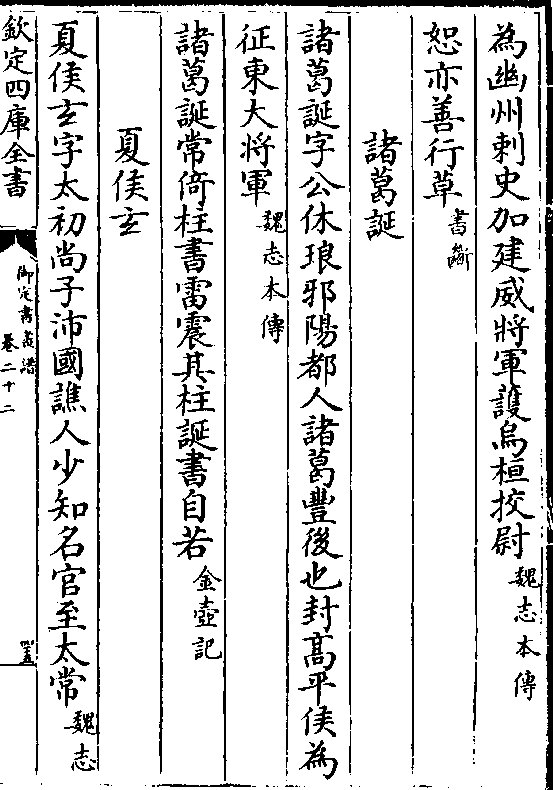 為幽州刺史加建威將軍護烏桓挍尉魏志本傳
恕亦善行草書斷
諸葛誕
諸葛誕字公休琅邪陽都人諸葛豐後也封髙平侯為
征東大將軍魏志本傳
諸葛誕常倚柱書雷震其柱誕書自若金壺記
夏侯玄
夏侯玄字太初尚子沛國譙人少知名官至太常魏志
欽定四庫全書
御定書畫譜
卷二十二